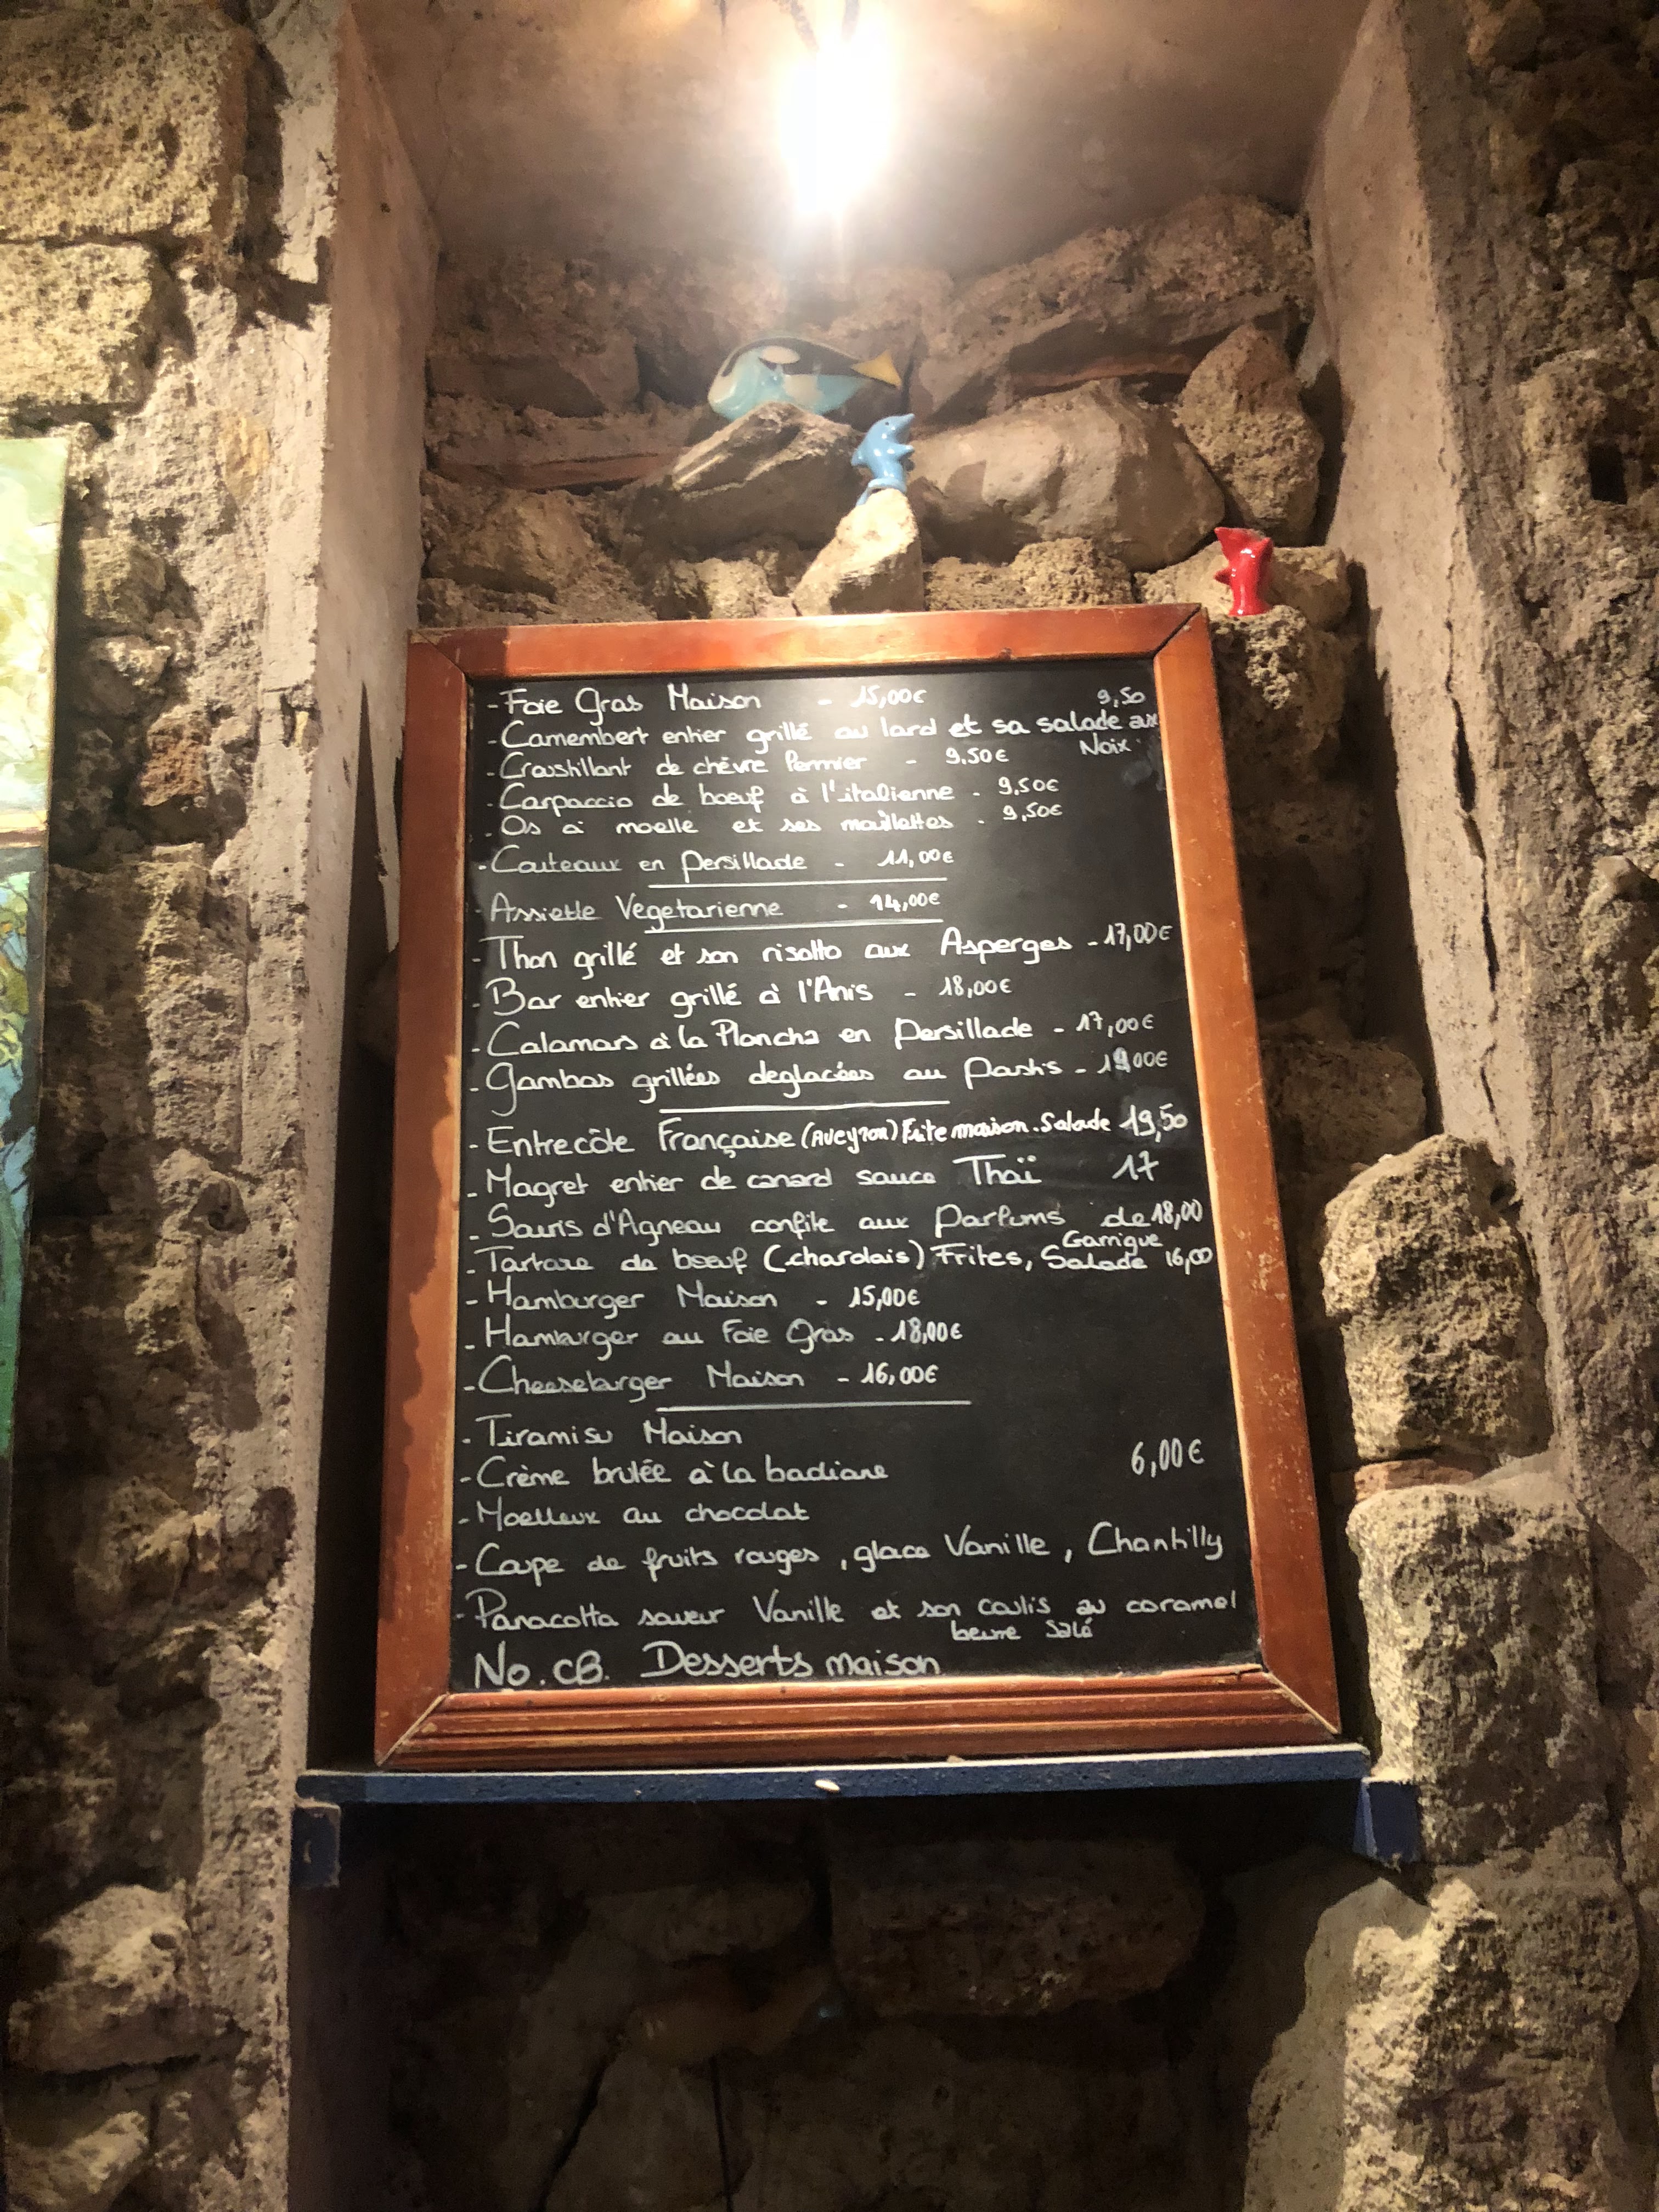 - Foie Gras Maison - 15,00€ 9,50
- Camembert entier grillé au lard et sa salade aux
Noix
- Croustillant de chèvre Fermier - 9.50€
- Carpaccio de boeuf à l'italienne - 9,50€
- Os à moelle et ses mouillettes - 9,50€
- Couteaux en Persillade - 11,00€
- Assiette Vegetarienne - 14,00€
- Thon grillé et son risotto aux Asperges - 17,00€
- Bar entier grillé à l'Anis - 18,00€
- Calamars à la Plancha en Persillade - 17,00€
- Gambas grillées deglacées au Pastis - 19,00€
- Entrecôte Française (Aveyron) Frite maison. Salade 19,50
- Magret entier de canard sauce Thaï 17
- Souris d'Agneau confite aux Parfums de 18,00
Garrigue
- Tartare de boeuf (charolais) Frites, Salade 16,00
- Hamburger Maison - 15,00€
- Hamburger au Foie Gras - 18,00€
- Cheeseburger Maison - 16,00€
- Tiramisu Maison
- Crème brulée à la badiane 6,00€
- Moelleux au chocolat
- Coupe de fruits rouges, glace Vanille, Chantilly
- Panacotta saveur Vanille et son coulis au caramel
beurre salé
No. CB. Desserts maison